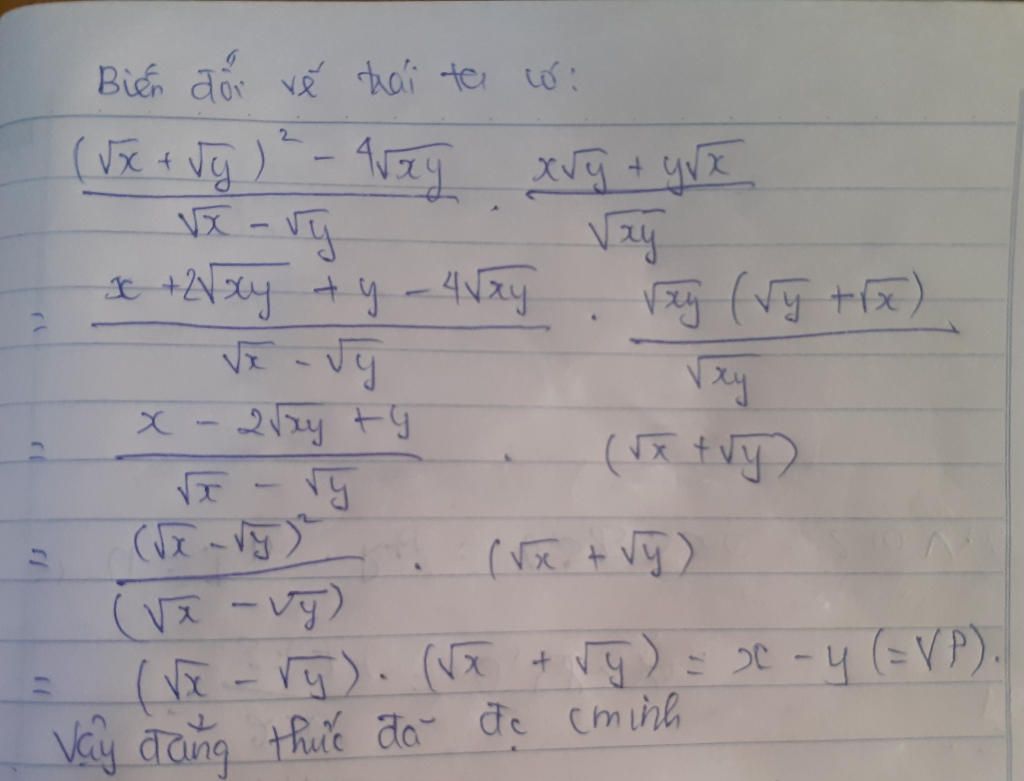 Biến đổi vế trái ta có:
(√x + √y)² - 4√xy / √x - √y . x√y + y√x / √xy
= x + 2√xy + y - 4√xy / √x - √y . √xy (√y + √x) / √xy
= x - 2√xy + y / √x - √y . (√x + √y)
= (√x - √y)² / (√x - √y) . (√x + √y)
= (√x - √y) . (√x + √y) = x - y (= VP).
Vậy đẳng thức đã đc cminh